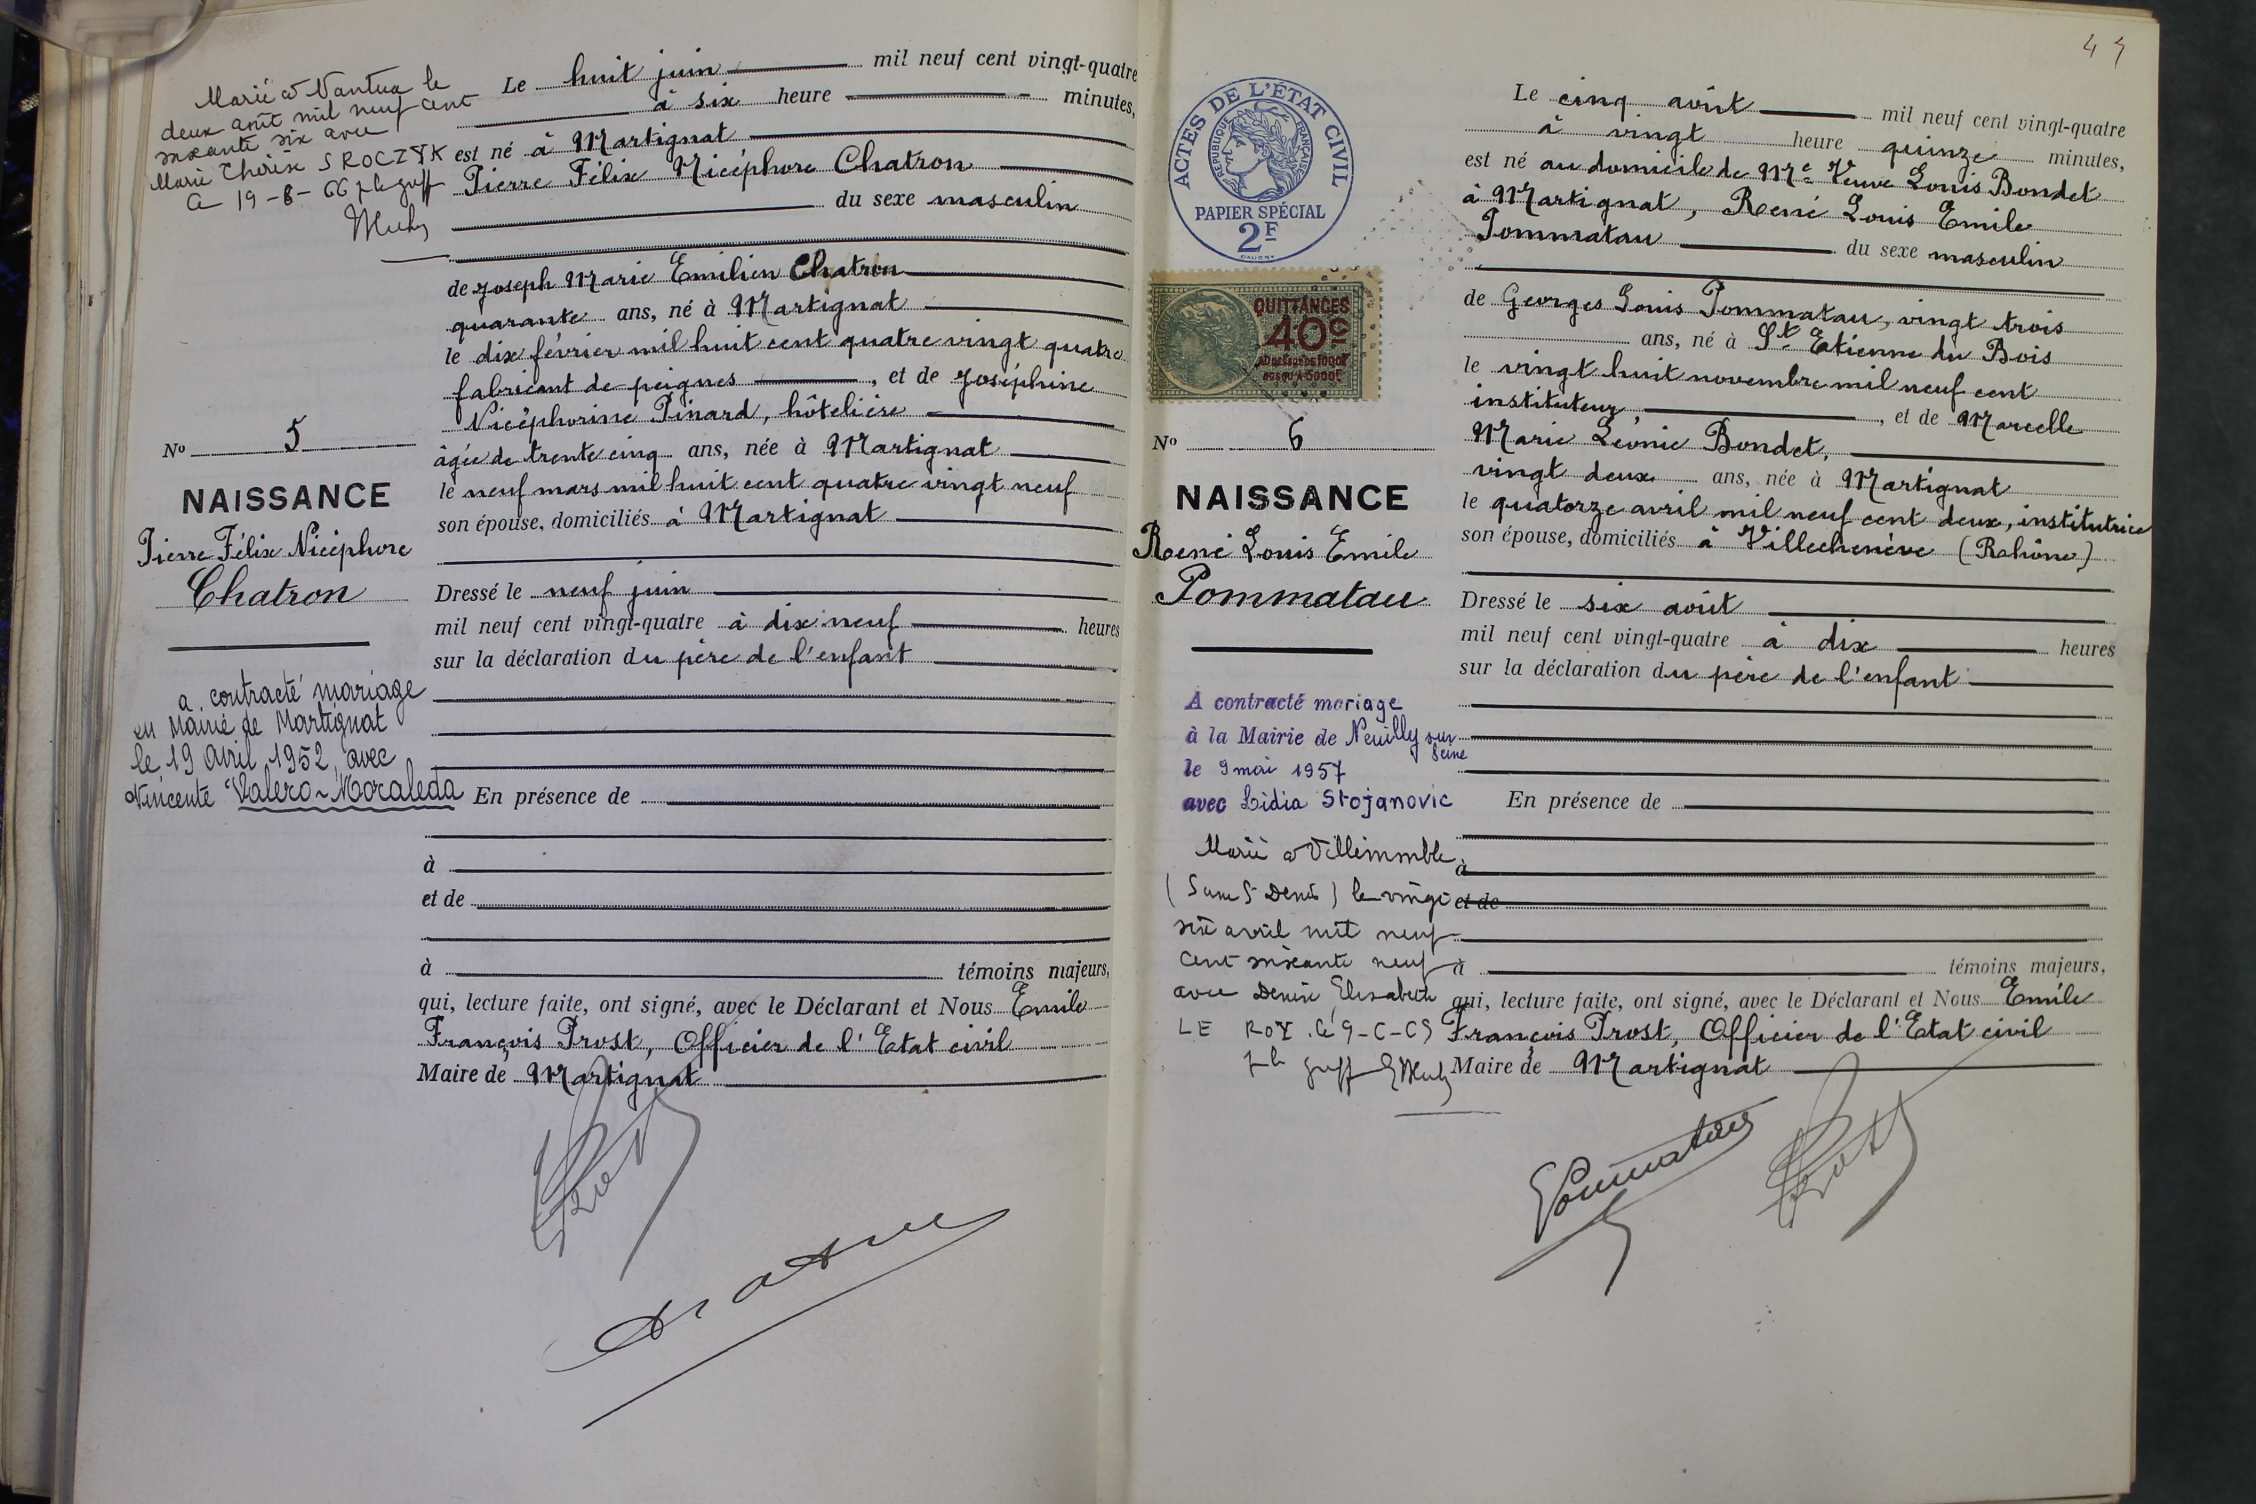 Marié à Nantua le
deux août mil neuf cent
soixante six avec
Marie Thérèse SROCZYK
le 19-8-66
Le huit juin mil neuf cent vingt-quatre
à six heure minutes,
est né à Martignat
Pierre Félix Nicéphore Chatron
du sexe masculin
de Joseph Marie Emilien Chatron
quarante ans, né à Martignat
le dix février mil huit cent quatre vingt quatre
fabricant de peignes, et de Joséphine
Nicéphorine Pinard, hôtelière
âgée de trente cinq ans, née à Martignat
le neuf mars mil huit cent quatre vingt neuf
son épouse, domiciliés à Martignat
No 5
NAISSANCE
Pierre Félix Nicéphore
Chatron
Dressé le neuf juin
mil neuf cent vingt-quatre à dix neuf heures
sur la déclaration du père de l'enfant
a contracté mariage
en Mairie de Martignat
le 19 Avril 1952, avec
Vincente Valéro-Moraleda
En présence de
à
et de
à témoins majeurs,
qui, lecture faite, ont signé, avec le Déclarant et Nous Emile
François Prost, Officier de l'Etat civil
Maire de Martignat
Prost
Chatron
ACTES DE L'ÉTAT CIVIL
RÉPUBLIQUE FRANÇAISE
PAPIER SPÉCIAL
2F
QUITTANCES
40c
No 6
NAISSANCE
René Louis Emile
Pommatau
A contracté mariage
à la Mairie de Neuilly sur
Seine
le 9 mai 1957
avec Lidia Stojanovic
Marié à Villemomble
(Seine St Denis) le vingt
six avril mil neuf
cent soixante neuf
avec Denise Elisabeth
LE ROY
Le cinq août mil neuf cent vingt-quatre
à vingt heure quinze minutes,
est né au domicile de Me Veuve Louis Bondet
à Martignat, René Louis Emile
Pommatau du sexe masculin
de Georges Louis Pommatau, vingt trois
ans, né à St Etienne du Bois
le vingt huit novembre mil neuf cent
instituteur, et de Marcelle
Marie Léonie Bondet,
vingt deux ans, née à Martignat
le quatorze avril mil neuf cent deux, institutrice
son épouse, domiciliés à Villechenève (Rhône)
Dressé le six août
mil neuf cent vingt-quatre à dix heures
sur la déclaration du père de l'enfant
En présence de
à
et de
à témoins majeurs,
qui, lecture faite, ont signé, avec le Déclarant et Nous Emile
François Prost, Officier de l'Etat civil
Maire de Martignat
Pommatau
Prost